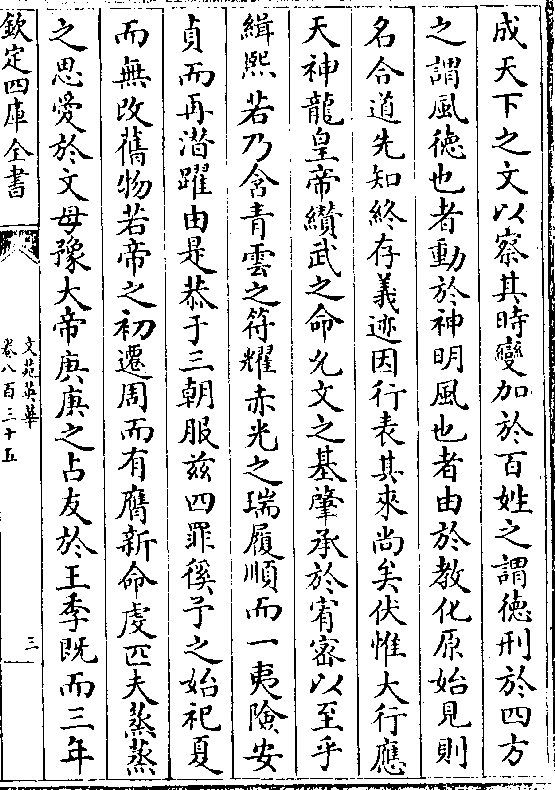 成天下之文以察其時變加於百姓之謂徳刑於四方
之謂風徳也者動於神明風也者由於教化原始見則
名合道先知終存義迹因行表其來尚矣伏惟大行應
天神龍皇帝纘武之命允文之基肇承於宥密以至乎
緝熙若乃含青雲之符耀赤光之瑞履順而一夷險安
貞而再潜躍由是恭于三朝服兹四罪徯予之始祀夏
而無改舊物若帝之初遷周而有膺新命虔匹夫蒸蒸
之思愛於文母豫大帝庚庚之占友於王季既而三年
欽定四庫全書
文苑英華
卷八百三十五
三